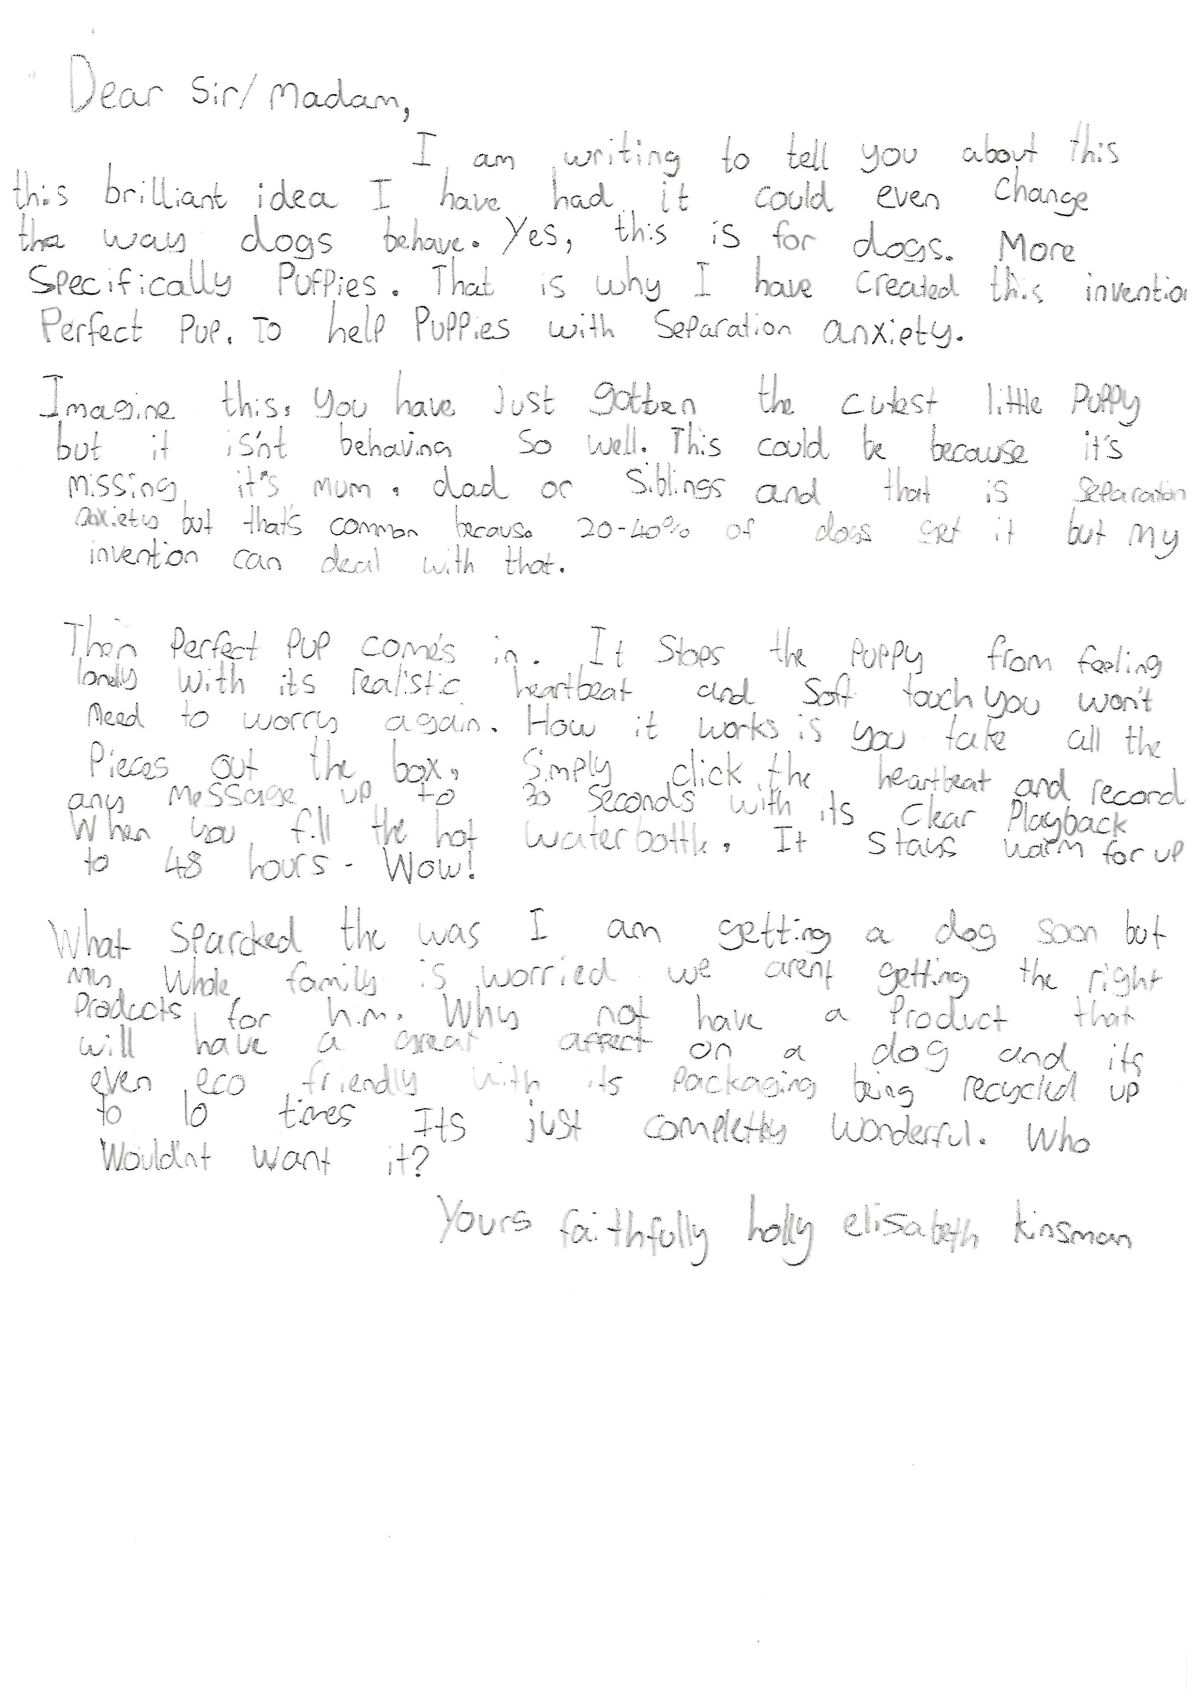 Dear Sir/Madam,
I am writing to tell you about this
this brilliant idea I have had it could even change
the way dogs behave. Yes, this is for dogs. More
Specifically Puppies. That is why I have created this inventio
Perfect Pup. To help Puppies with Separation anxiety.
Imagine this, you have just gotten the cutest little Puppy
but it is'nt behaving so well. This could be because it's
missing it's mum, dad or siblings and that is separation
anxiety but that's common because 20-40% of dogs get it but my
invention can deal with that.
Then Perfect Pup come's in. It stops the puppy from feeling
lonely with its realistic heartbeat and soft touch you won't
need to worry again. How it works is you take all the
Pieces out the box, Simply click the heartbeat and record
any message up to 30 seconds with its clear Playback
When you fill the hot water bottle, It stays warm for up
to 48 hours - Wow!
What sparcked the was I am getting a dog soon but
my whole family is worried we arent getting the right
Products for him. Why not have a Product that
will have a great affect on a dog and its
even eco friendly with its packaging being recycled up
to 10 times Its just completly wonderful. Who
Would'nt want it?
Yours faithfully holly elisabeth kinsman